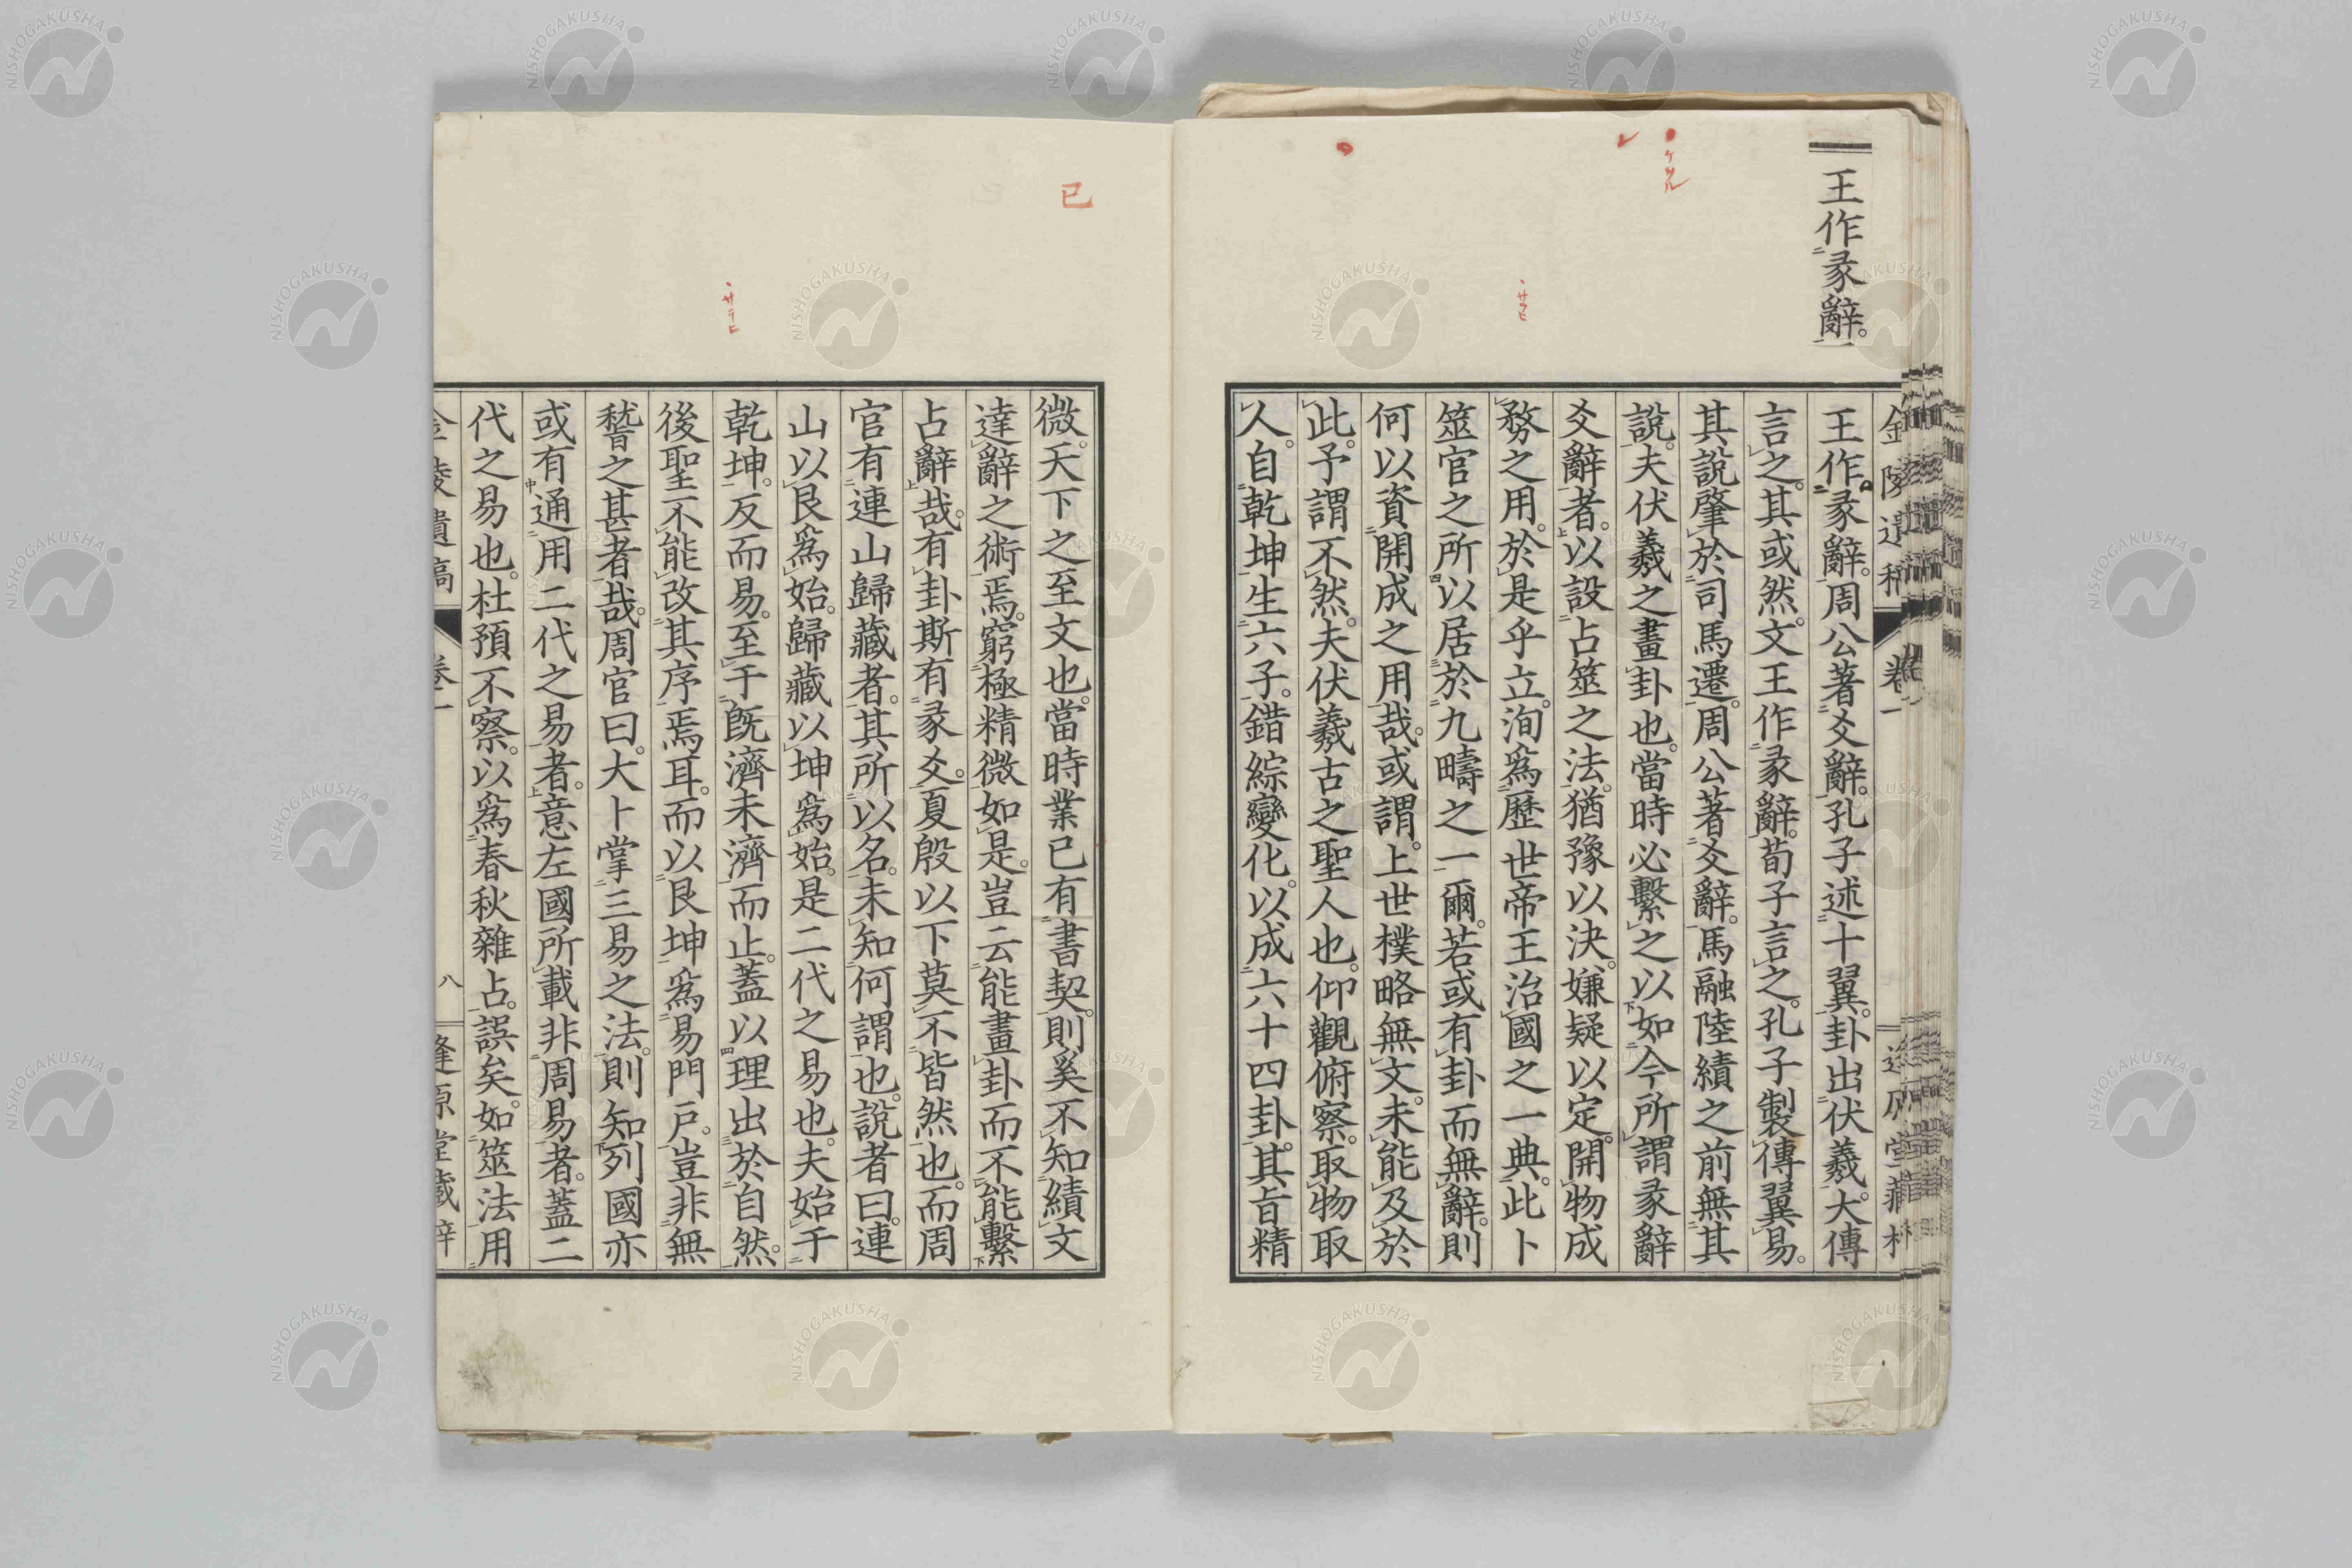 王作彖辭。
金陵遺稿 卷一
王作彖辭。周公著爻辭。孔子述十翼。卦出伏羲。大傳
言之。其或然。文王作彖辭。荀子言之。孔子製傳翼易。
其說肇於司馬遷。周公著爻辭。馬融陸績之前無其
說。夫伏羲之畫卦也。當時必繫之以如今所謂彖辭
爻辭者。以設占筮之法。猶豫以決。嫌疑以定。開物成
務之用。於是乎立。洵爲歷世帝王治國之一典。此卜
筮官之所以居於九疇之一爾。若或有卦而無辭。則
何以資開成之用哉。或謂。上世樸略無文。未能及於
此。予謂不然。夫伏羲古之聖人也。仰觀俯察。取物取
人。自乾坤生六子。錯綜變化。以成六十四卦。其旨精
已
微。天下之至文也。當時業已有書契。則奚不知績文
達辭之術焉。窮極精微如是。豈云能畫卦而不能繫
占辭哉。有卦斯有彖爻。夏殷以下莫不皆然也。而周
官有連山歸藏者。其所以名。未知何謂也。說者曰。連
山以艮爲始。歸藏以坤爲始。是二代之易也。夫始于
乾坤。反而易。至于既濟未濟而止。蓋以理出於自然。
後聖不能改其序焉耳。而以艮坤爲易門戶。豈非無
稽之甚者哉。周官曰。大卜掌三易之法。則知列國亦
或有通用二代之易者。意左國所載非周易者。蓋二
代之易也。杜預不察。以爲春秋雜占。誤矣。如筮法用
金陵遺稿 卷一 八 逢原堂藏梓
ケツル
サラヒ
NISHOGAKUSHA